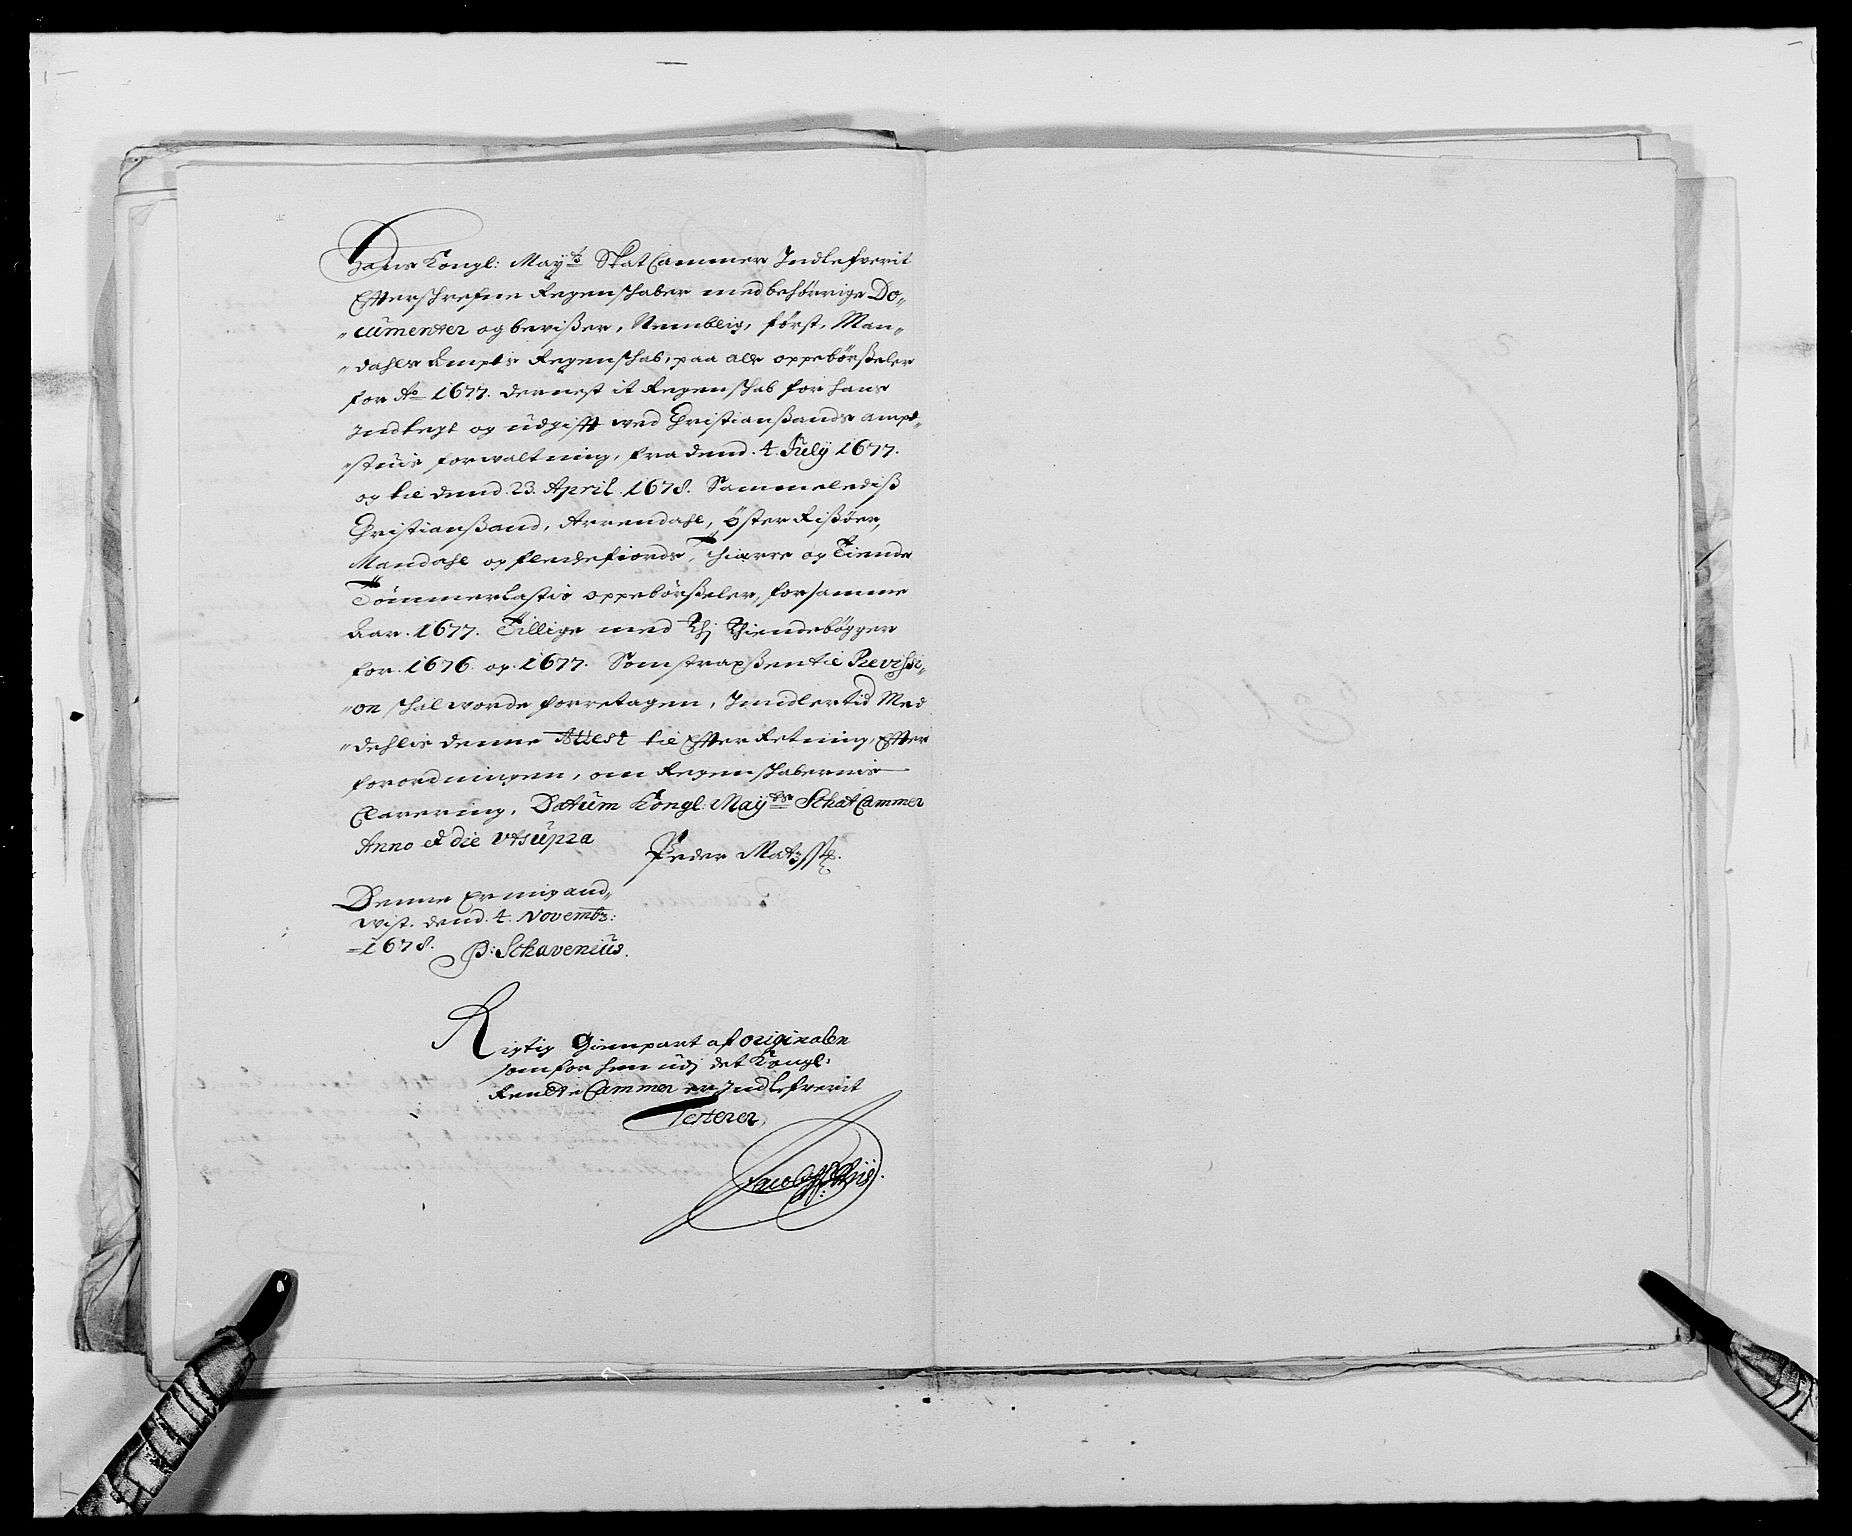 Hans Kongl: May:ts SkatCammer Indlefverit
Efterschrefne Regenschaber med behörrige Do„
„cumenter og bevißer, Nemblig, först, Man„
„dahls Ampts Regenschab, paa alle oppebörßeler
for Ao 1677. dernest it Regenschab for hans
Indtegt og udgifft ved Christianßands ampt„
„stuis forwaltning, fra dend. 4. July 1677.
og til dend. 23. April. 1678. Sammelediß
Christianßand, Arrendahl, Öster Rißöer,
Mandahl og Flechefiords, Thiærre og Tiende
Tömmerlastis oppebörßeler, for samme
Aar. 1677. Tillige med Thiendebögger
for. 1676. og. 1677. Som strax ßen til Revissi„
„on schal worde forretagen, Imidlertid Med
„dehlis denne Attest til Effter Retning, Effter
forordningen, om Regenschabernis
Clarering, Datum Kongl: May:ts SchatCammer
Anno et die ut supra
Peder
Denne Er mig and„
wist. dend. 4. Novemb:
=1678. P: Schavenius.
Rigtig Gienpart af originalen
som for hen udj det Kongl:
Rendte Cammer er Indlefverit
Testerer